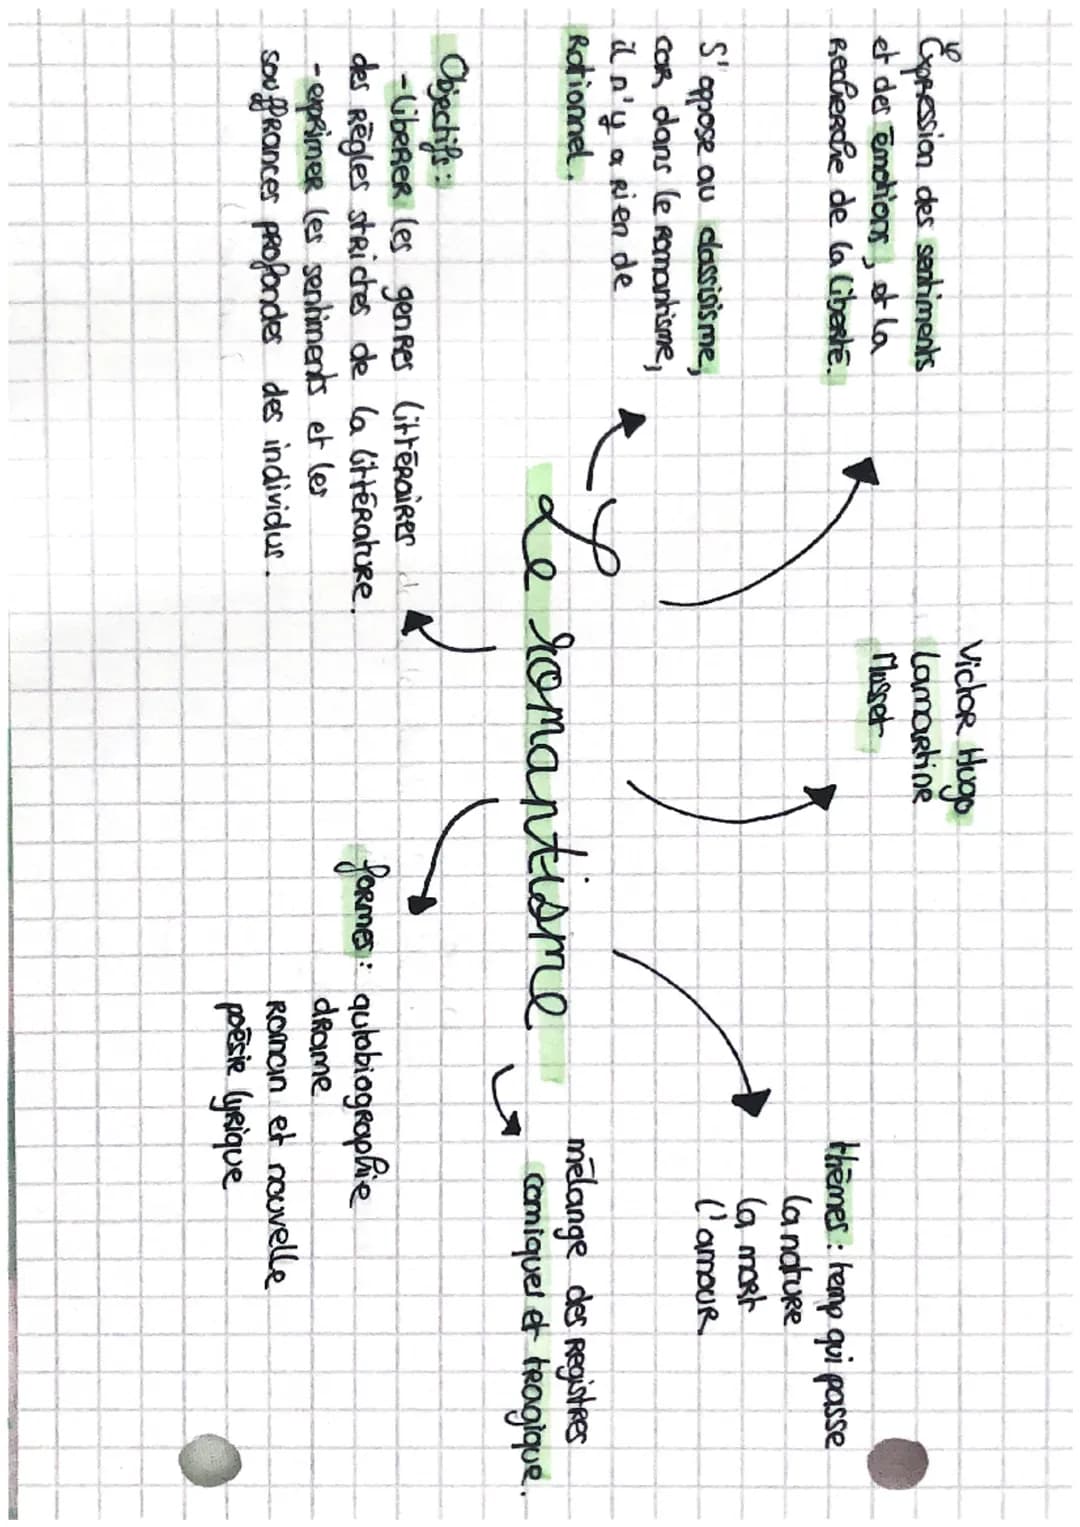 Expression des sentiments
et des émotions, et la
Recherche de la liberté.
S'oppose au classisisme,
car dans le romantisme,
il n'y a rien de
Rationnel.
Victor Hugo
Lamartine
Musset
thèmes : temp qui passe
la nature
la mort
l'amour
Le romantisme
mélange des registres
comiques et tragique.
Objectifs :
- libérer les genres littéraires
des Règles strictes de la littérature.
- exprimer les sentiments et les
souffrances profondes des individus.
formes : autobiographie
drame
Roman et nouvelle
poésie lyrique